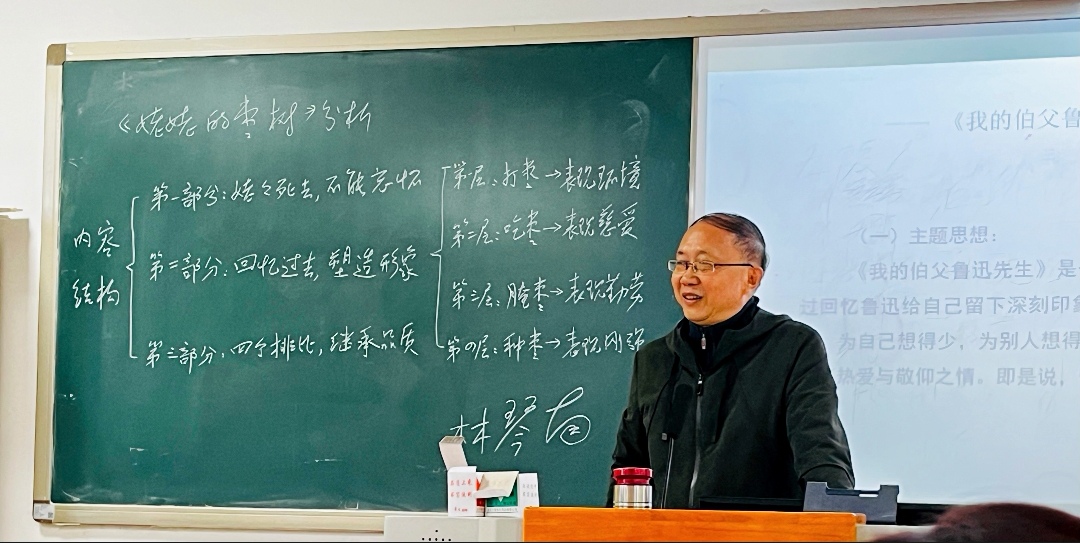 《姥姥的枣树》分析
内容
结构
第一部分:姥々死去,不能忘怀
第二部分:回忆过去,塑造形象
第三部分:四个排比,继承品质
第一层:打枣→表现环境
第二层:吃枣→表现慈爱
第三层:腌枣→表现勤劳
第四层:种枣→表现刚强
林琴南
——《我的伯父鲁
(一)主题思想:
《我的伯父鲁迅先生》是
过回忆鲁迅给自己留下深刻印象
为自己想得少,为别人想得
热爱与敬仰之情。即是说,